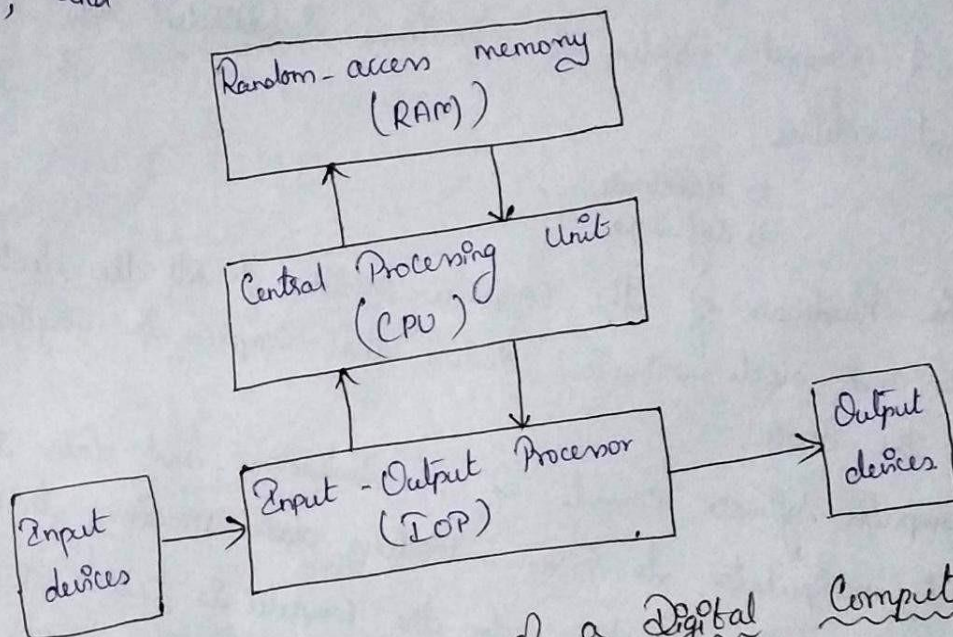 Random-access memory
(RAM)
Central Processing Unit
(CPU)
Input-Output Processor
(IOP)
Output
devices
Input
devices
of a Digital Comput